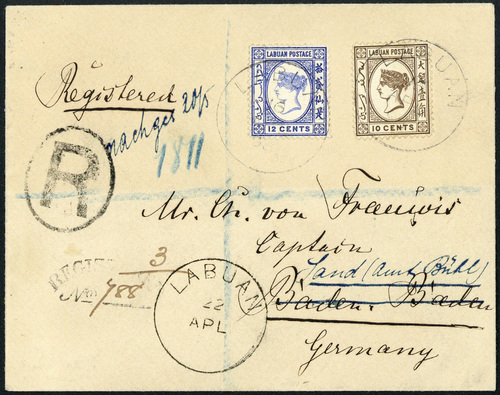 Registered
nachges. 20/5
1811
R
LABUAN POSTAGE
12 CENTS
LABUAN POSTAGE
10 CENTS
LABUAN
Mr. Ch. von François
Captain
Sand (Amt Bühl)
Baden-Baden
Germany
3
REGISTERED
No. 788
LABUAN
22
APL